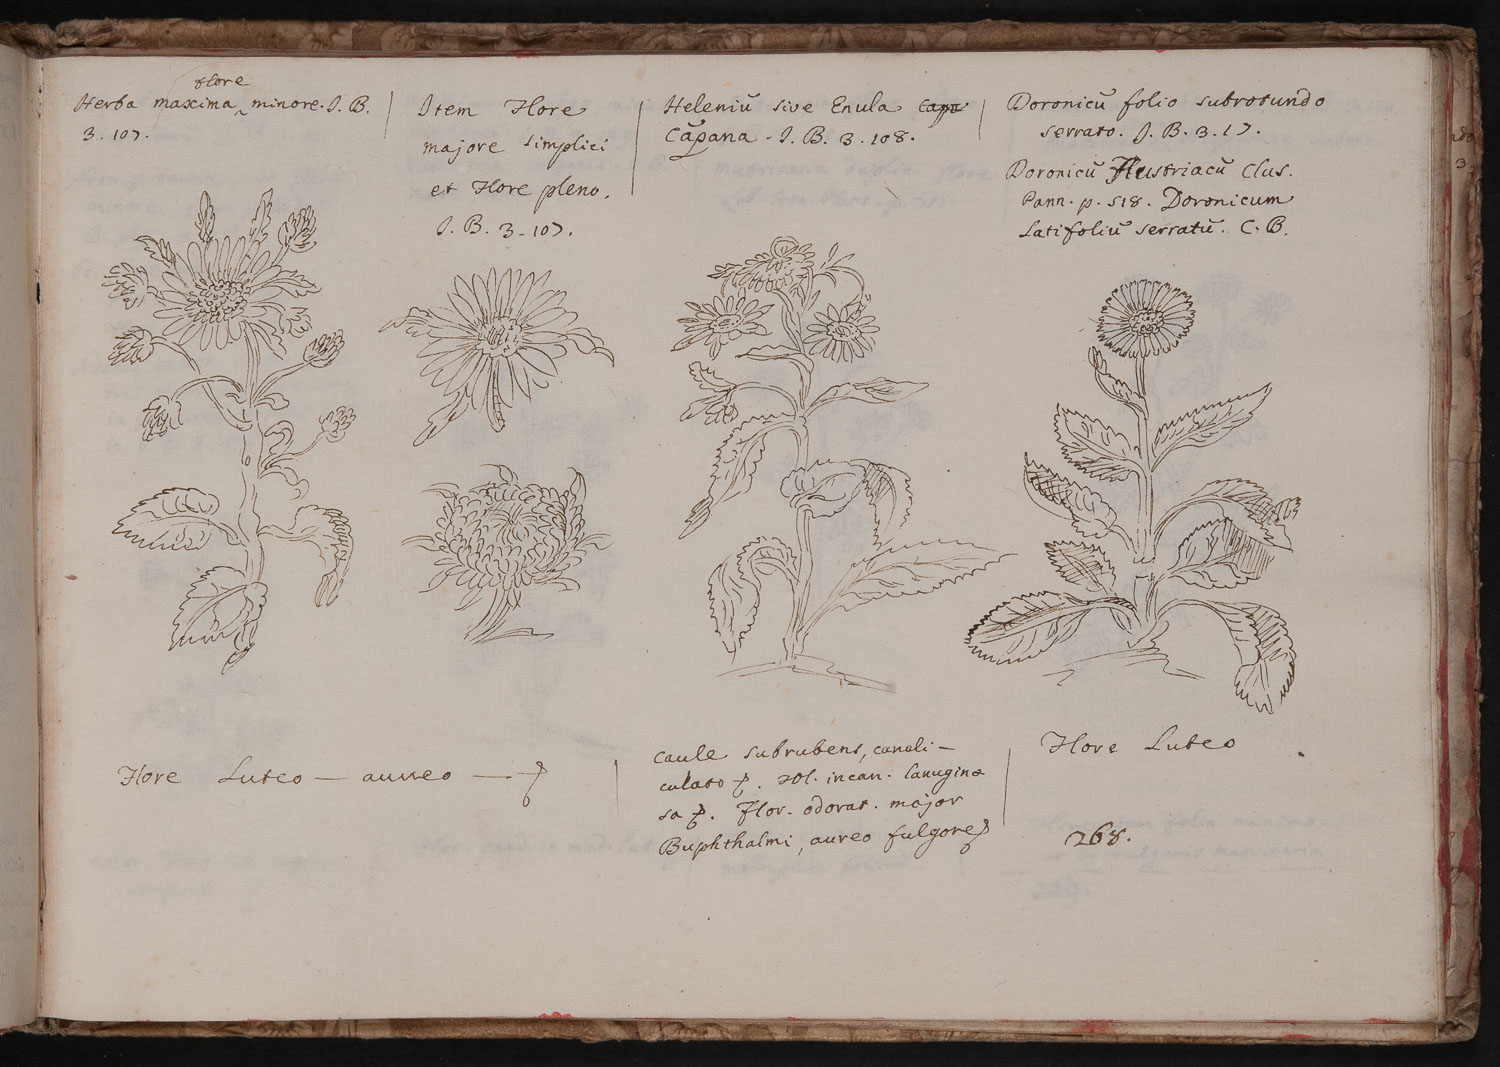 flore
Herba maxima ‸ minore. J. B.
3. 107.
Item Flore
majore simplici
et Flore pleno.
J. B. 3. 107.
Heleniũ sive Enula Capa
Cãpana. J. B. 3. 108.
Doronicũ folio subrotundo
serrato. J. B. 3. 17.
Doronicũ Austriacũ Clus.
Pann. p. 518. Doronicum
Latifoliũ serratũ. C. B.
Flore Luteo — aureo —
caule subrubent, canali-
culato
. incan. lanugino
sa . Flor. odorat. major
Buphthalmi, aureo fulgore
Flore Luteo
268.